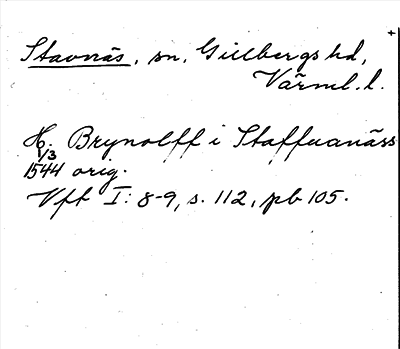 Stavnäs, sn, Gillbergs hd,
Värml. l.
H. Brynolff i Staffuanäss
1/3
1544 orig.
Vft I: 8-9, s. 112, pb 105.